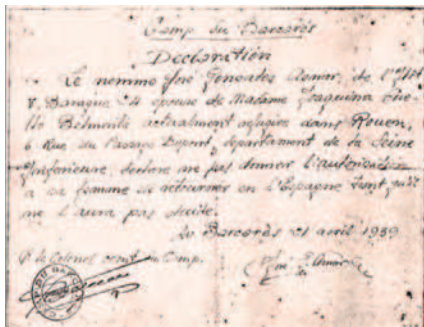 Camp du Barcarès
Declaration
Le nommé José Gonzales Aomar, de
Baraque époux de Madame Joaquina
Belmonte actualment refugiée dans Rouen,
6 Rue du Passage Dupont, departament de la Seine
Inferieure, declare ne pas donner l'autorisation
a sa femme de retourner en l'Espagne tant qu'il
ne l'aura pas
Le Barcarès 21 avril 1939
P. le Colonel Camp.